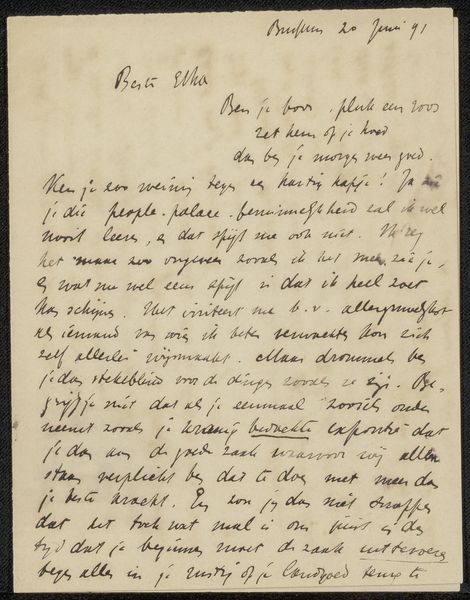 Brussel 20 Juni 91
Beste Etha
Ben je boos, pluk een roos
zet hem op je hoed
dan ben je morgen weer goed.
Kan je zoo weinig tegen een hartig hapje! Ja
je die people-palace-beminnelijkheid zal ik wel
nooit leeren, en dat spijt me ook niet. Ik zeg
het maar zoo ongeveer zooals ik het zie je,
en wat me wel eens spijt is dat ik heel zoet
kan schijnen. Het irriteert me b.v. allergruwelijkst
als iemand van wie ik beter verwachten kon zich
zelf allerlei wijsmaakt. Maar drommels ben
je dan stekeblind voor de dingen zooals ze zijn. Be-
grijp je niet dat als je eenmaal zooiets onder
neemt zooals je kranig bedachte expositie dat
je dan aan de goede zaak waarvoor wij allen
staan verplicht ben dat te doen met meer dan
je beste kracht. En zou jij dan niet snappen
dat het toch wat mal is om juist in den
tijd dat je beginnen moet de zaak uittevoeren
alles in je rustig op je landgoed terug te